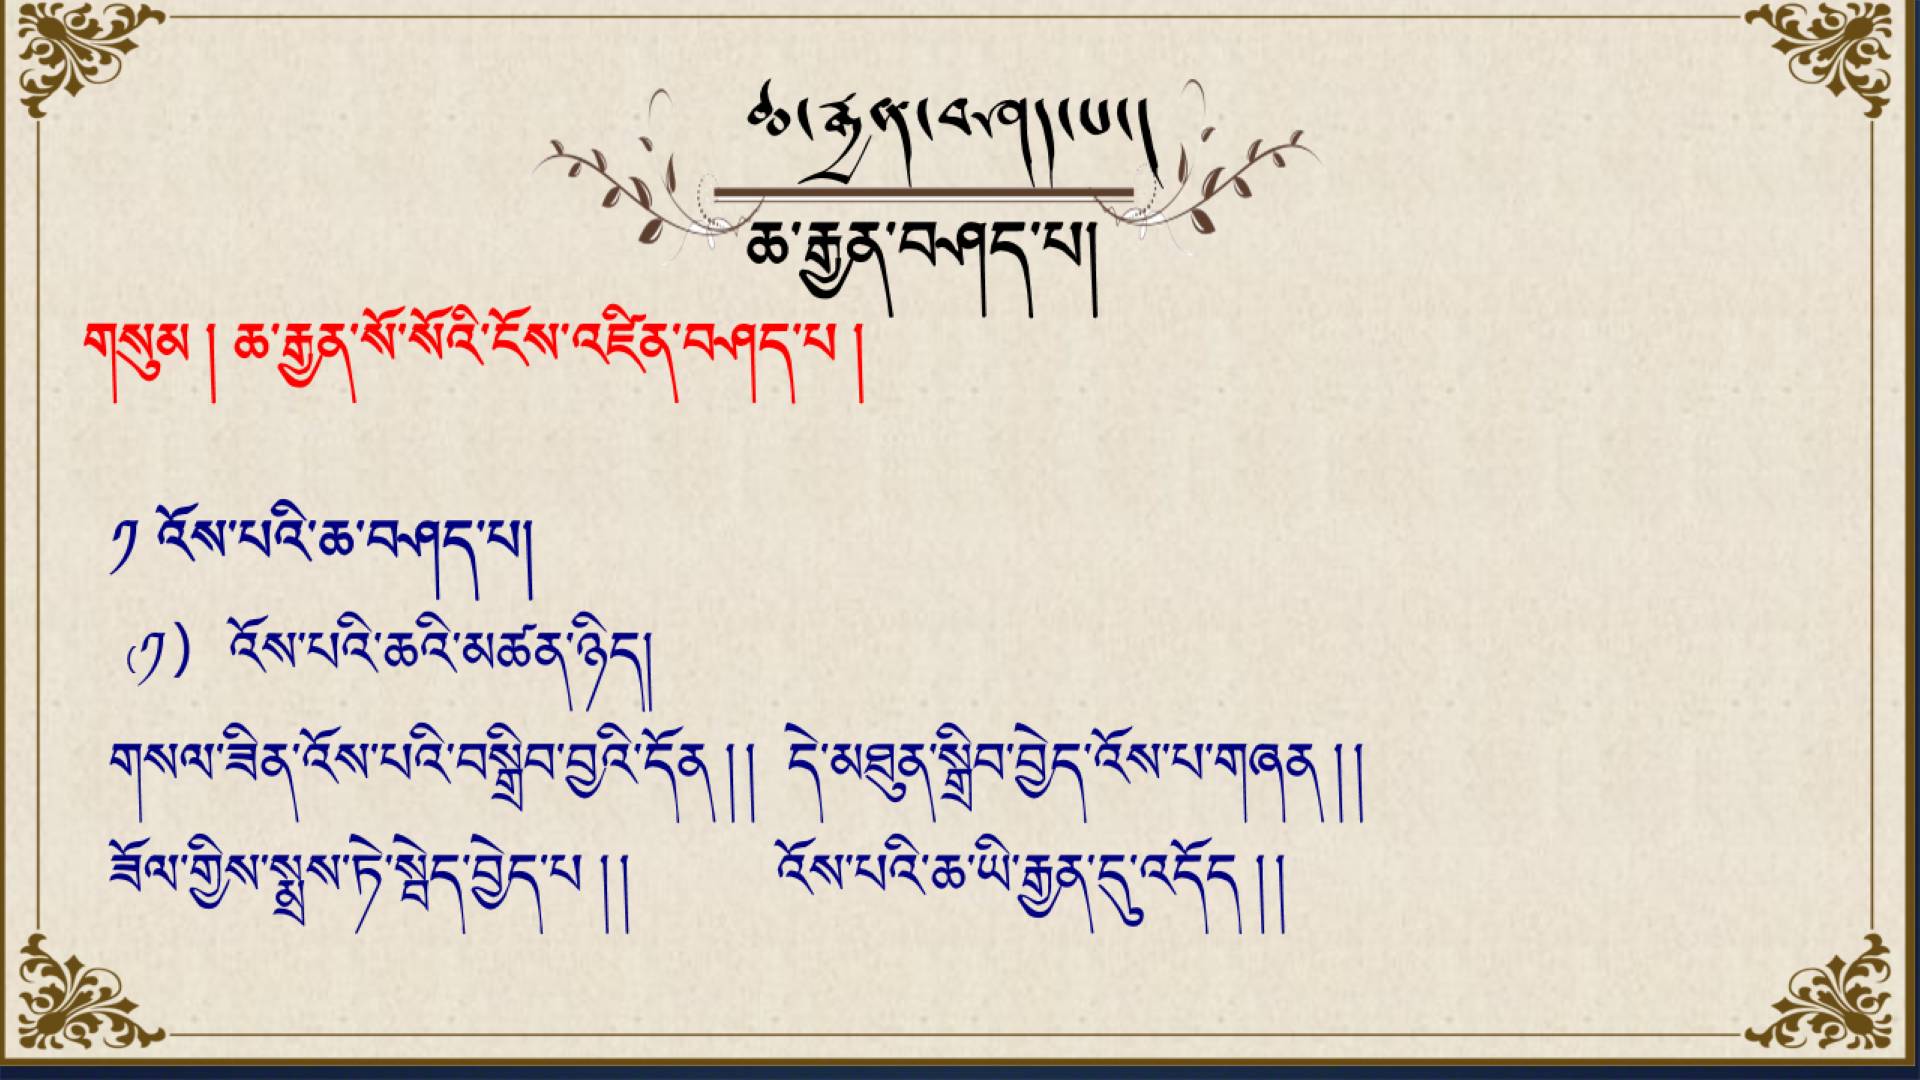 ཆ་རྐྱེན་བཤད་པ།
ཆ་རྒྱན་བཤད་པ།
གསུམ། ཆ་རྒྱན་སོ་སོའི་ངོས་འཛིན་བཤད་པ།
༡ འོས་པའི་ཆ་བཤད་པ།
(༡) འོས་པའི་ཆའི་མཚན་ཉིད།
གསལ་ཟིན་འོས་པའི་བསྒྲིབ་བྱའི་དོན།། དེ་མཐུན་སྒྲིབ་བྱེད་འོས་པ་གཞན།།
ཟོལ་གྱིས་སྨྲས་ཏེ་སྦེད་བྱེད་པ།། འོས་པའི་ཆ་ཡི་རྒྱན་དུ་འདོད།།